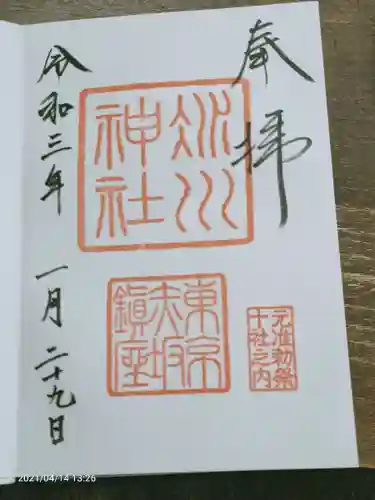 奉拝
氷川
神社
東京
赤坂
鎭座
元准勅祭
十社之内
令和三年 一月 二十九日
2021/04/14 13:26